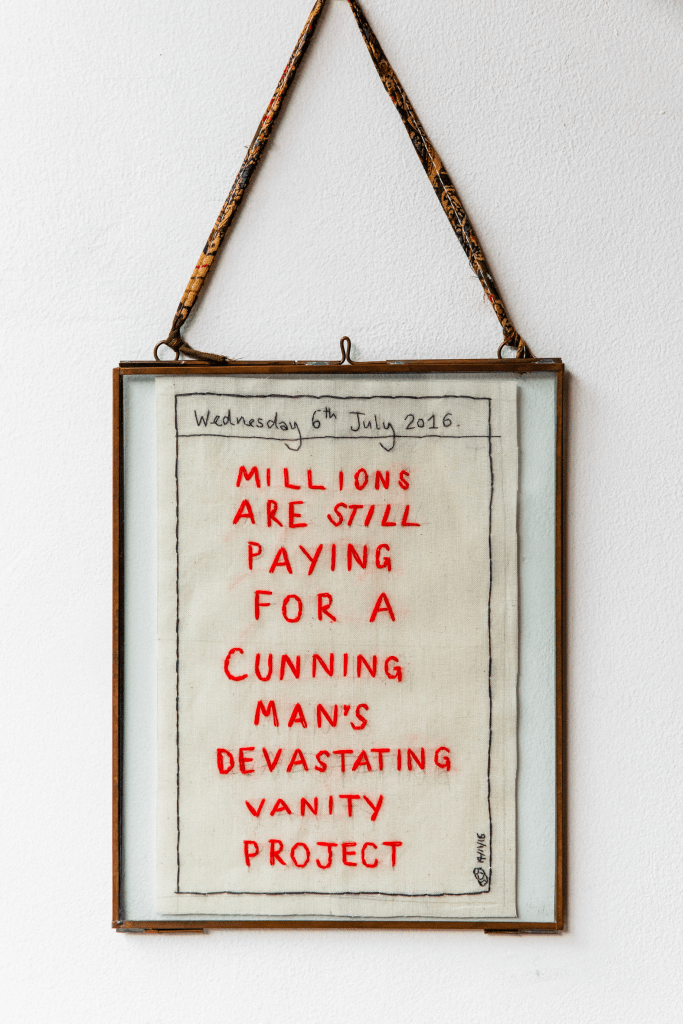 Wednesday 6th July 2016.
MILLIONS
ARE STILL
PAYING
FOR A
CUNNING
MAN'S
DEVASTATING
VANITY
PROJECT